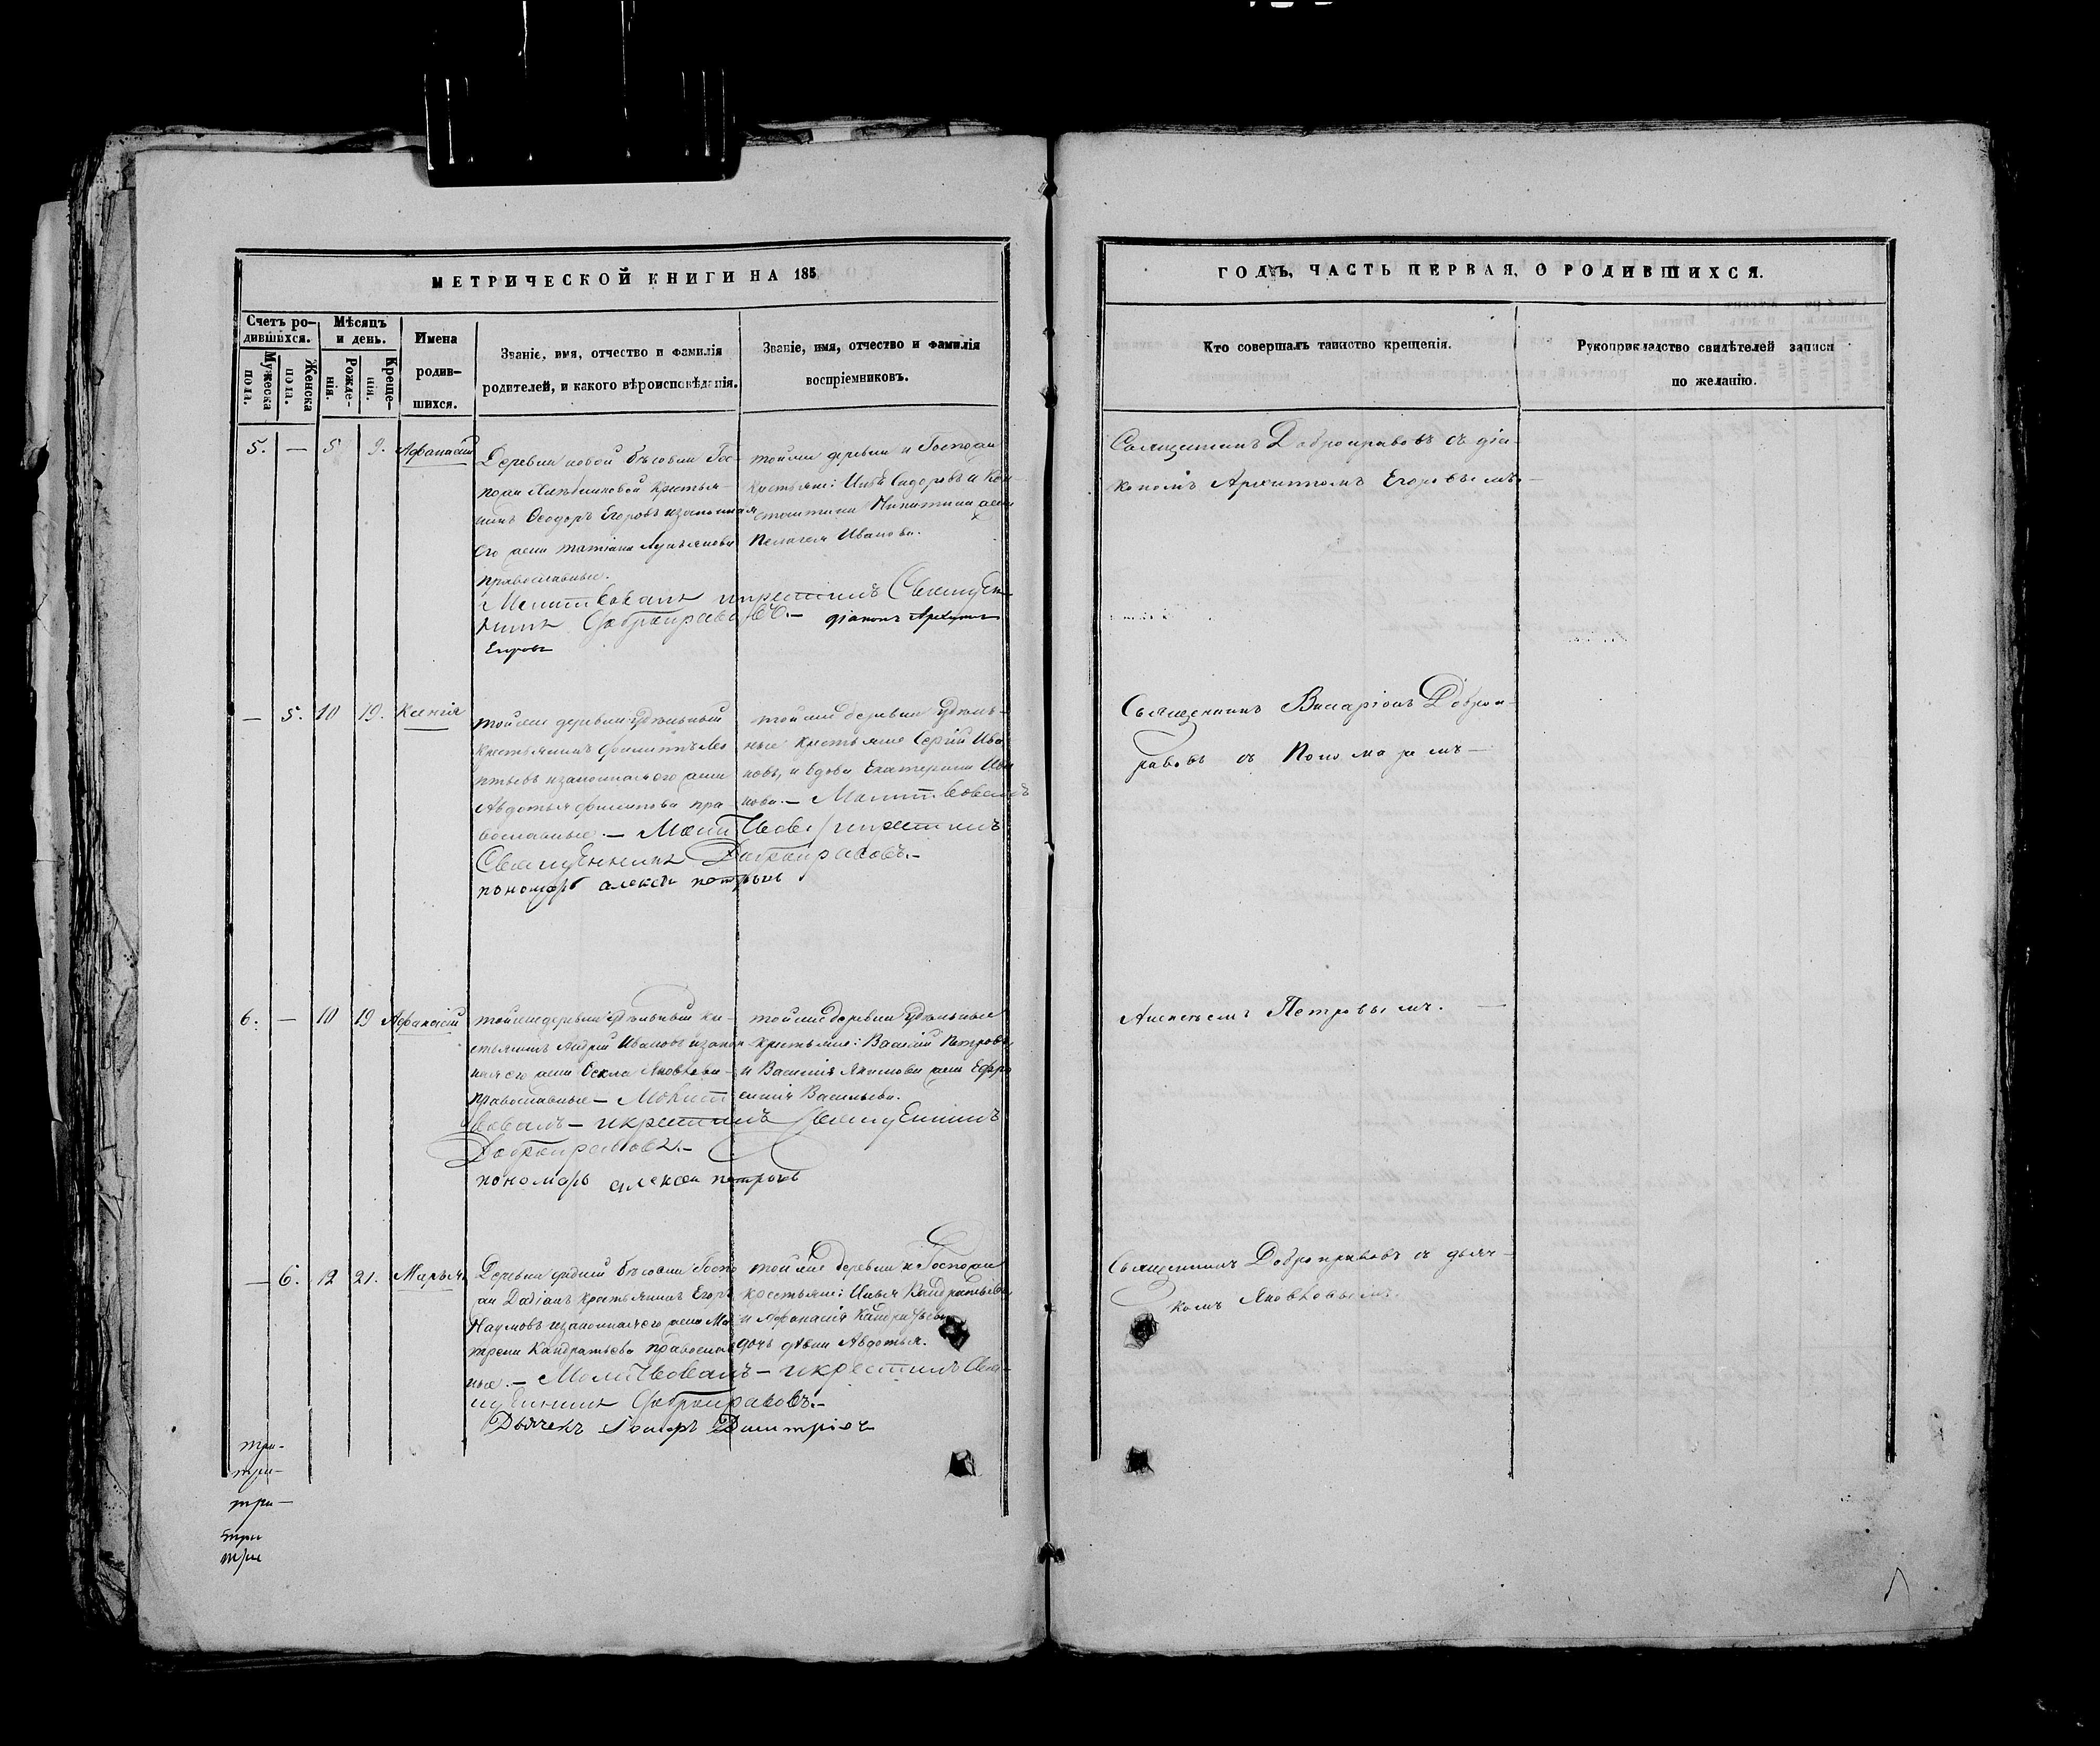 МЕТРИЧЕСКОЙ КНИГИ НА 185
Счетъ ро-
дившихся.
Мужеска
пола.
Женска
пола.
Мѣсяцъ
и день.
Рожде-
нія.
Креще-
нія.
Имена
родив-
шихся.
Званіе, имя, отчество и фамилія
родителей, и какого вѣроисповѣданія.
Званіе, имя, отчество и фамилія
воспріемниковъ.
5. — 5 9. Афанасій
Деревни новой Бѣсовки Гос-
пожи крестья-
нинъ Ѳеодоръ Егоровъ и законная
его жена Татіана Лукьянова
православные.
Молитвовалъ и крестилъ Священ-
никъ Добронравовъ. — діаконъ Архиппъ
Егоровъ
той же деревни и Госпожи
крестьяне: Сидоровъ и Кон-
стантина Никитина жена
Пелагея Иванова.
— 5. 10 19. Ксенія
той же деревни удѣльный
крестьянинъ Филиппъ Ле-
онтьевъ и законная его жена
Авдотья Филипова пра-
вославные. — Молитвовалъ и крестилъ
Священникъ Добронравовъ. —
пономарь алексѣй петровъ
той же деревни удѣль-
ные крестьяне Сергій Ива-
новъ, и вдова Екатерина Ива-
нова. — Молитвовалъ
6. — 10 19 Афанасій
той же деревни удѣльный кре-
стьянинъ Андрей Ивановъ и закон-
ная его жена Ѳекла Яковлева
православные — Молит-
вовалъ — и крестилъ Священникъ
Добронравовъ. —
пономарь алексѣй петровъ
той же деревни удѣльные
крестьяне: Василій Петровъ
и Василія Якимова жена Ефро-
синія Васильева.
— 6. 12 21. Марья
Деревни задней Бѣсовки Госпо-
жи Дадіанъ крестьянинъ Егоръ
Наумовъ и законная его жена Мат-
рена Кандратьева православ-
ные. — Молитвовалъ — и крестилъ Свя-
щенникъ Добронравовъ. —
Дьячекъ Дмитріевъ
той же деревни и Госпожи
крестьяне: Илья Кандратьевъ
и Афанасія Кандратьева
дочь дѣвка Авдотья.
три-
три-
три —
три
три
ГОДЪ, ЧАСТЬ ПЕРВАЯ, О РОДИВШИХСЯ.
Кто совершалъ таинство крещенія.
Рукоприкладство свидѣтелей записи
по желанію.
Священникъ Добронравовъ съ діа-
кономъ Архиппомъ Егоровымъ —
Священникъ Виссаріонъ Доброн-
равовъ съ Пономаремъ —
Алексѣемъ Петровымъ. —
Священникъ Добронравовъ съ дьяч-
комъ Яковлевымъ.